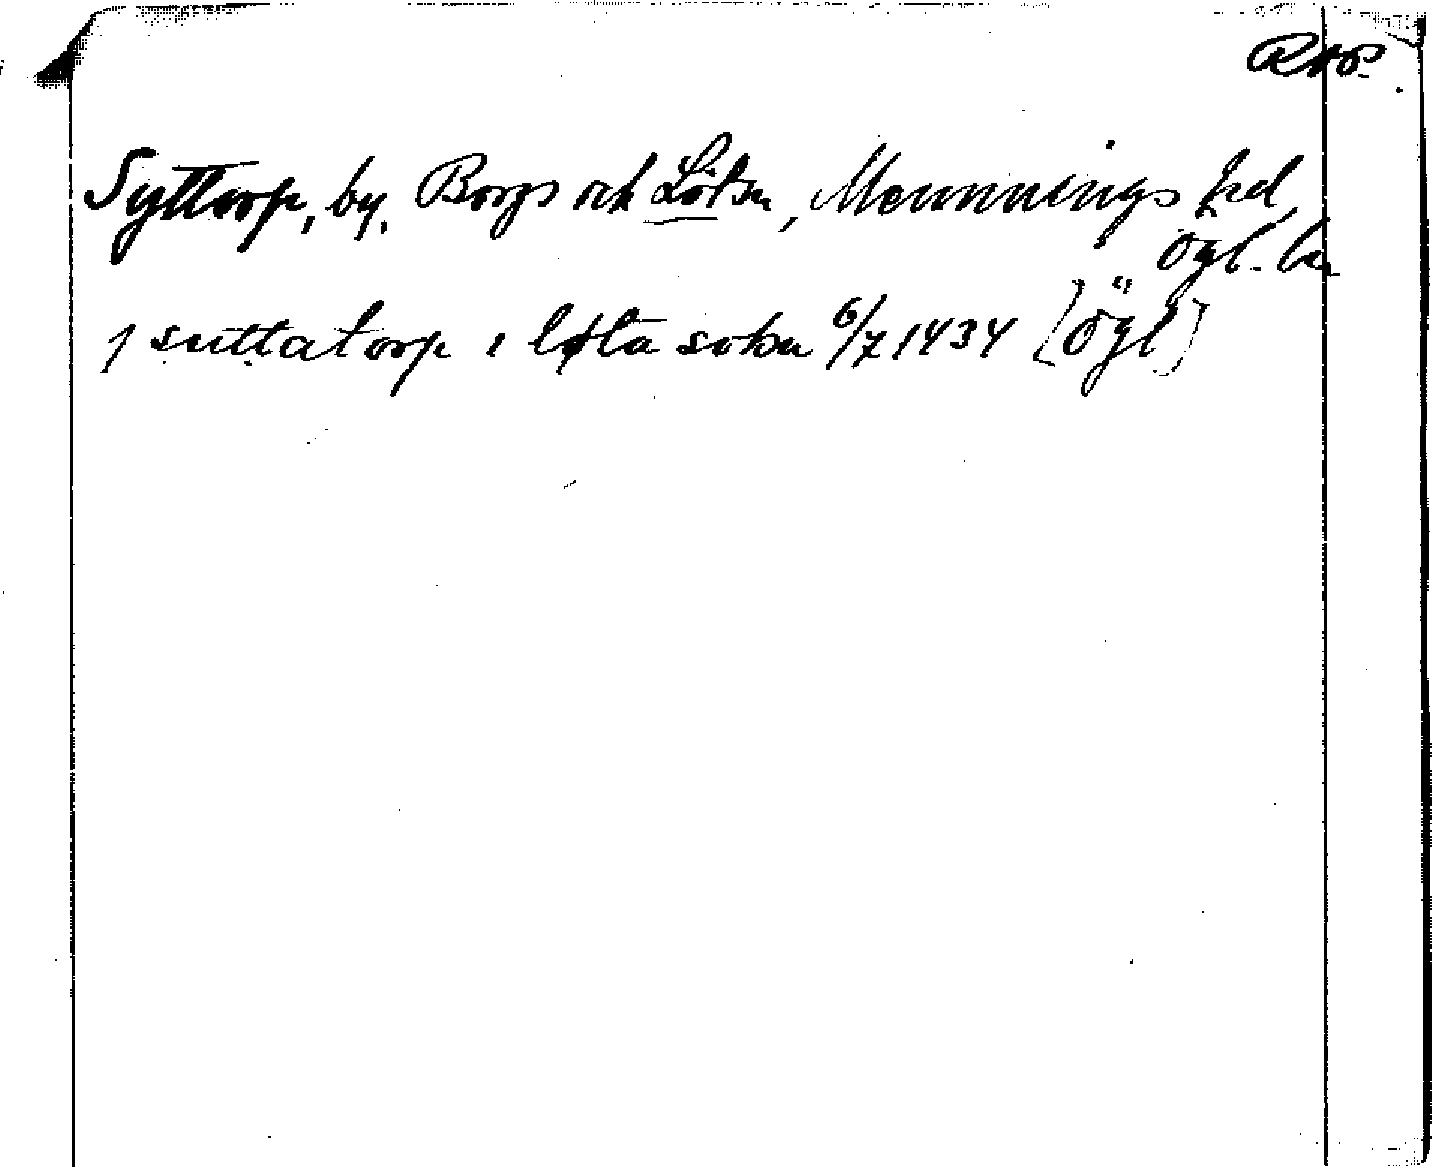 Syttorp, by, Borgs och Löts sn, Memmings hd,
Ögl. län
j suttatorp i løta sokn 6/7 1434 [Ögl]